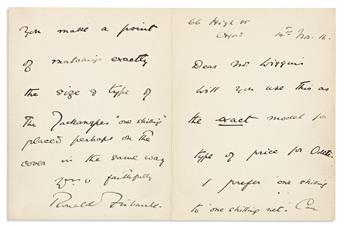 66 High St
Oxford
14th Nov. 16.
Dear Mr. Wiggins
Will you use this as
the exact model for
type of price for Odette.
I prefer 'one shilling'
to 'one shilling net.' Can
you make a point
of matching exactly
the size & type of
The "one shilling"
placed perhaps on the
cover in the same way
Yours faithfully
Ronald Firbank.